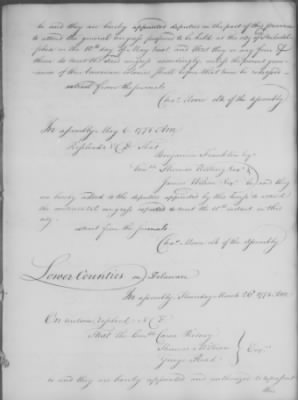 be and they are hereby appointed deputies on the part of this province
to attend the general congress proposed to be held at the city of Philadel-
phia on the 10th day of May next, and that they or any four of
them do meet the said congress accordingly, unless the present grie-
vances of the American colonies shall before that time be redressed
extract from the journals
Chas. Moore clk of the assembly
In assembly May 6. 1775 A.M.
Resolved N.C.D. That
Benjamin Franklin Esqr
Thomas Willing Esqr
James Wilson Esqr be and they
are hereby added to the deputies appointed by this house to attend
the continental congress expected to meet the 10th instant in this
city.
extract from the journals
Chas. Moore clk of the Assembly
Lower Counties on Delaware
In assembly, Thursday March 16th 1775. A.M.
On motion resolved N.C.D
That the Honble Caesar Rodney
Thomas McKean
George Read } Esqrs
be and they are hereby appointed and authorized to represent
this